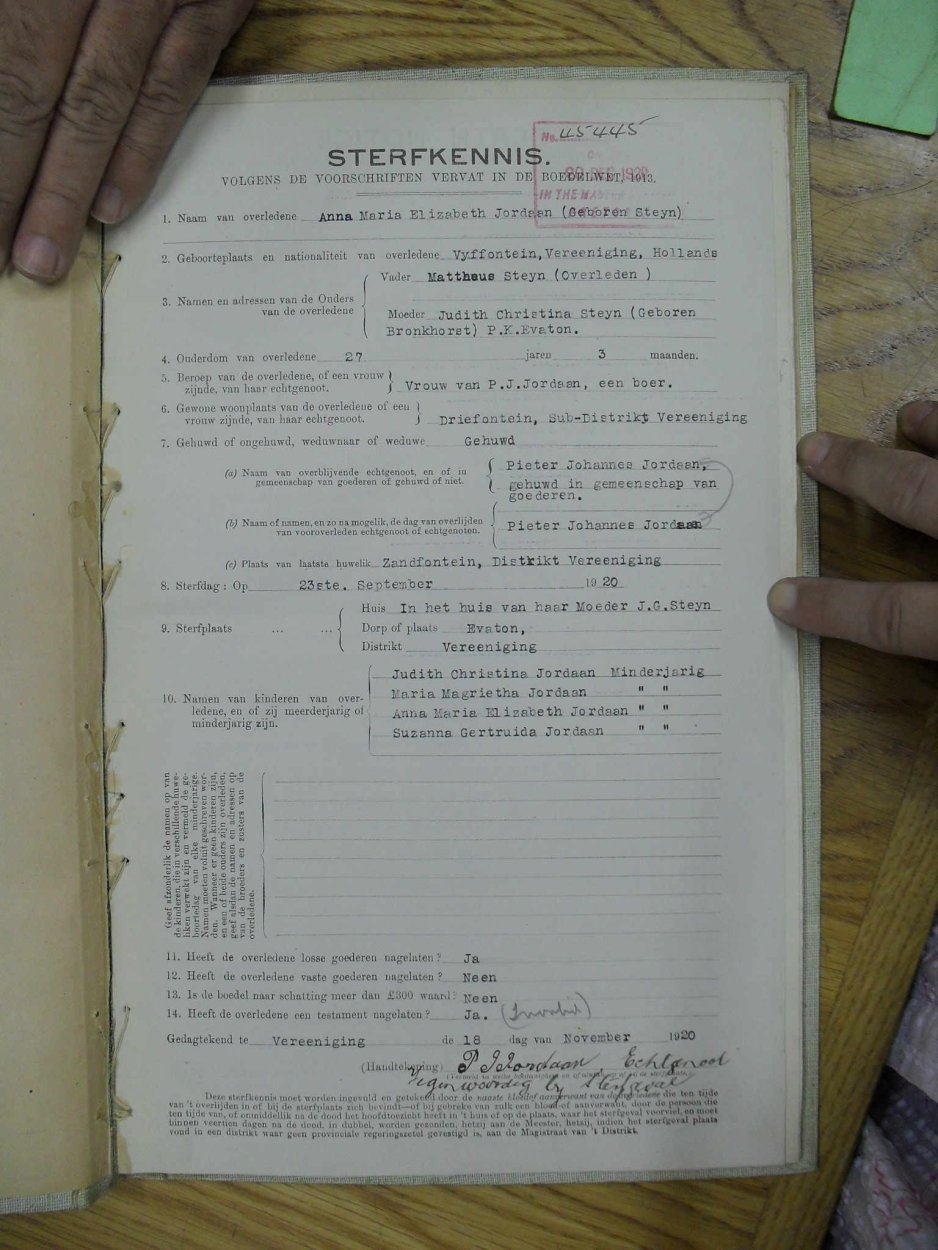 No. 45445
STERFKENNIS.
VOLGENS DE VOORSCHRIFTEN VERVAT IN DE BOEDELWET, 1913.
IN THE
1. Naam van overledene Anna Maria Elizabeth Jordaan (Geboren Steyn)
2. Geboorteplaats en nationaliteit van overledene Vyffontein, Vereeniging, Hollands
3. Namen en adressen van de Ouders van de overledene
Vader Mattheus Steyn (Overleden )
Moeder Judith Christina Steyn (Geboren
Bronkhorst) P.K.Evaton.
4. Ouderdom van overledene 27 jaren 3 maanden.
5. Beroep van de overledene, of een vrouw
zijnde, van haar echtgenoot. Vrouw van P.J.Jordaan, een boer.
6. Gewone woonplaats van de overledene of een
vrouw zijnde, van haar echtgenoot. Driefontein, Sub-Distrikt Vereeniging
7. Gehuwd of ongehuwd, weduwnaar of weduwe Gehuwd
(a) Naam van overblijvende echtgenoot, en of in
gemeenschap van goederen of gehuwd of niet.
Pieter Johannes Jordaan,
gehuwd in gemeenschap van
goederen.
(b) Naam of namen, en zo na mogelik, de dag van overlijden
van vooroverleden echtgenoot of echtgenoten.
Pieter Johannes Jordaan
(c) Plaats van laatste huwelik Zandfontein, Distrikt Vereeniging
8. Sterfdag: Op 23ste. September 1920
9. Sterfplaats ... ...
Huis In het huis van haar Moeder J.G.Steyn
Dorp of plaats Evaton,
Distrikt Vereeniging
10. Namen van kinderen van over-
ledene, en of zij meerderjarig of
minderjarig zijn.
Judith Christina Jordaan Minderjarig
Maria Magrietha Jordaan " "
Anna Maria Elizabeth Jordaan " "
Suzanna Gertruida Jordaan " "
Geef afzonderlik de namen op van
de kinderen, die in verschillende huwe-
liken verwekt zijn en vermeld de ge-
boortedag van elke minderjarige.
Namen moeten voluit geschreven wor-
den. Wanneer er geen kinderen zijn,
en een of beide ouders zijn overleden,
geef alsdan de namen en adressen op
van de broeders en zusters van de
overledene.
11. Heeft de overledene losse goederen nagelaten? Ja
12. Heeft de overledene vaste goederen nagelaten? Neen
13. Is de boedel naar schatting meer dan £300 waard? Neen
14. Heeft de overledene een testament nagelaten? Ja. (Invalid)
Gedagtekend te Vereeniging de 18 dag van November 1920
(Handtekening) P J Jordaan Echtgenoot
Tegenwoordig by sterfgeval
Deze sterfkennis moet worden ingevuld en getekend door de naaste bloedof aanverwant van de overledene die ten tijde
van 't overlijden in of bij de sterfplaats zich bevindt—of bij gebreke van zulk een bloed of aanverwant, door de persoon die
ten tijde van, of onmiddellik na de dood het hoofdtoezicht heeft in 't huis of op de plaats, waar het sterfgeval voorviel, en moet
binnen veertien dagen na de dood, in dubbel, worden gezonden, hetzij aan de Meester, hetzij, indien het sterfgeval plaats
vond in een distrikt waar geen provinciale regeringszetel gevestigd is, aan de Magistraat van 't Distrikt.